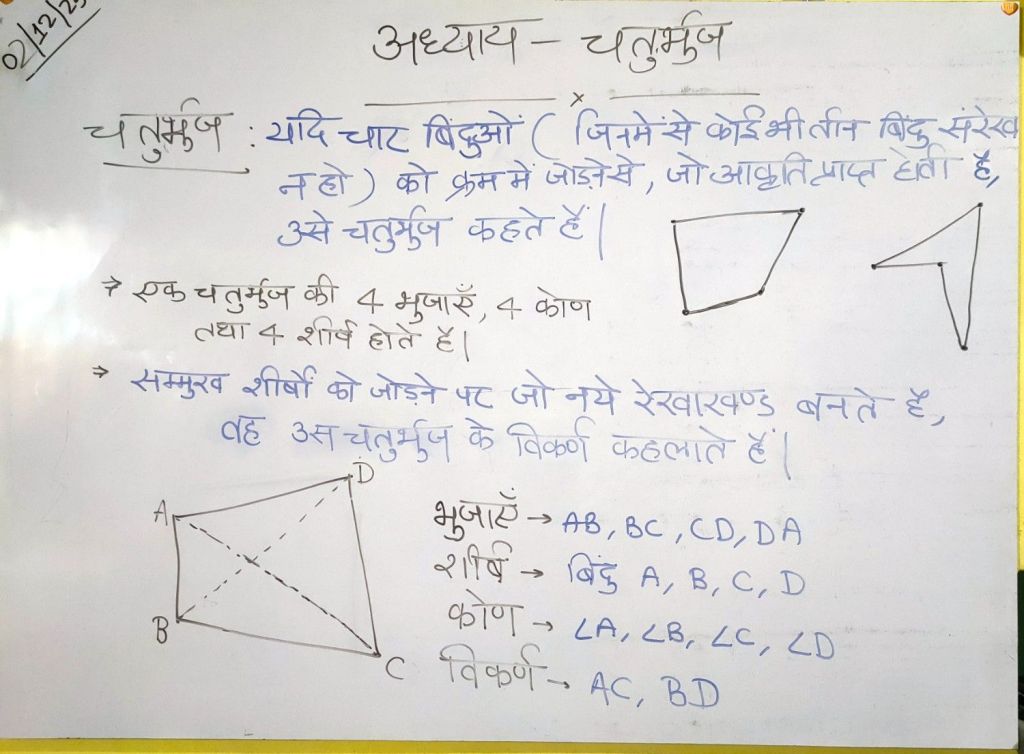 02/12/25
अध्याय - चतुर्भुज
x
चतुर्भुज : यदि चार बिंदुओं ( जिनमें से कोई भी तीन बिंदु संरेख
न हो ) को क्रम में जोड़ने से, जो आकृति प्राप्त होती है,
उसे चतुर्भुज कहते हैं |
→ एक चतुर्भुज की 4 भुजाएँ, 4 कोण
तथा 4 शीर्ष होते है |
→ सम्मुख शीर्षों को जोड़ने पर जो नये रेखाखण्ड बनते है,
वह उस चतुर्भुज के विकर्ण कहलाते हैं |
A D B C
भुजाएँ → AB, BC, CD, DA
शीर्ष → बिंदु A, B, C, D
कोण → ∠A, ∠B, ∠C, ∠D
विकर्ण → AC, BD